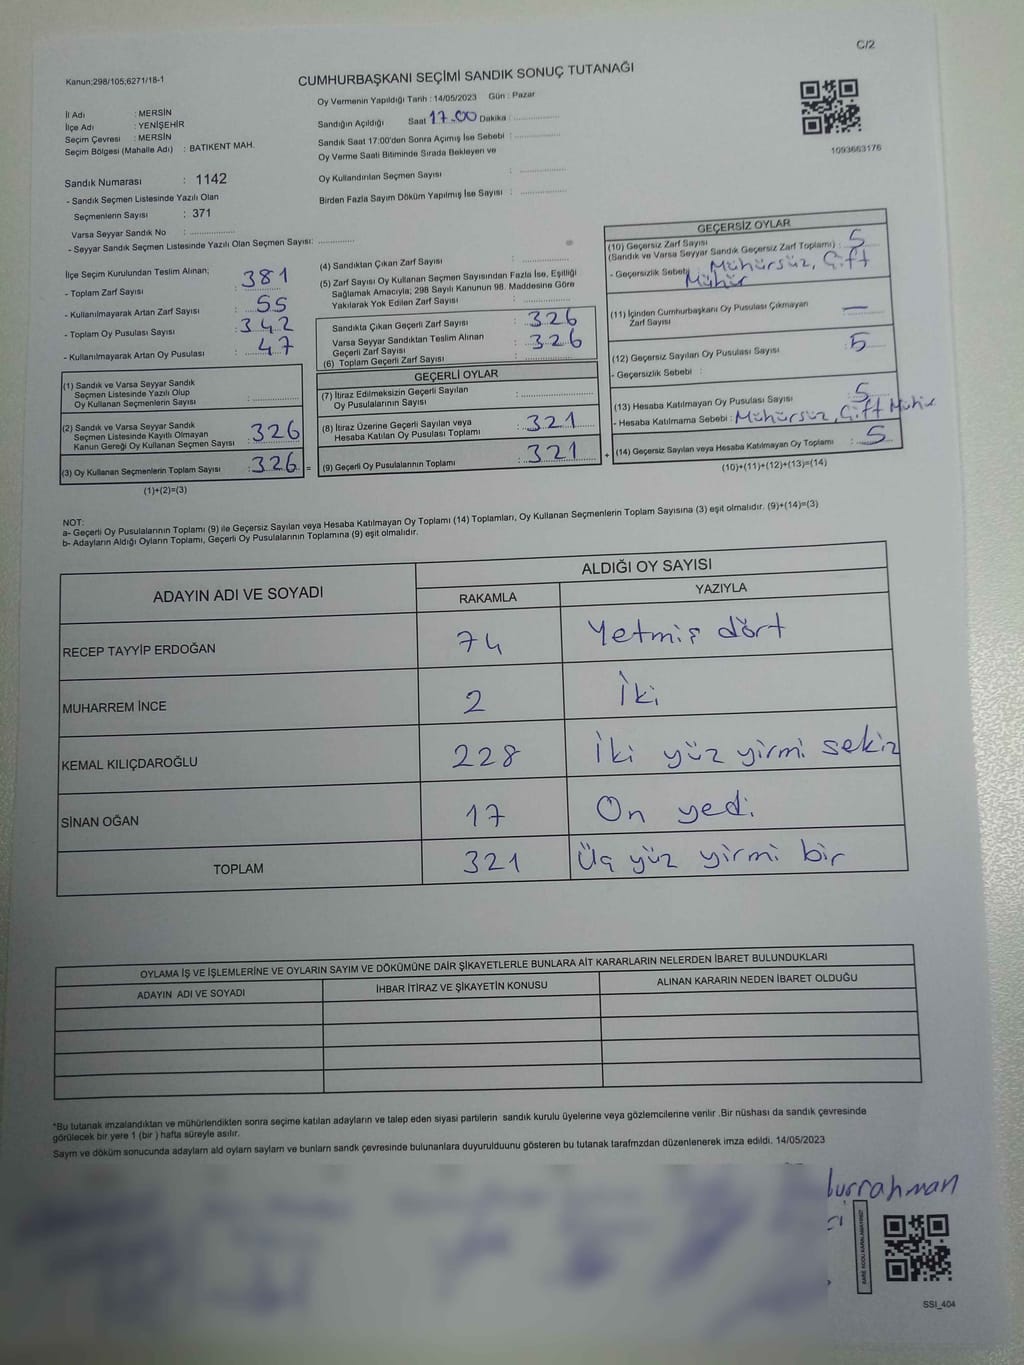 C/2
Kanun;298/105;6271/18-1
CUMHURBAŞKANI SEÇİMİ SANDIK SONUÇ TUTANAĞI
Oy Vermenin Yapıldığı Tarih : 14/05/2023 Gün : Pazar
İl Adı : MERSİN
İlçe Adı : YENİŞEHİR
Seçim Çevresi : MERSİN
Seçim Bölgesi (Mahalle Adı) : BATIKENT MAH.
Sandığın Açıldığı Saat 17.00 Dakika :
Sandık Saat 17:00'den Sonra Açımış İse Sebebi :
Oy Verme Saati Bitiminde Sırada Bekleyen ve
Oy Kullandırılan Seçmen Sayısı :
Birden Fazla Sayım Döküm Yapılmış İse Sayısı :
1093663176
Sandık Numarası : 1142
- Sandık Seçmen Listesinde Yazılı Olan
Seçmenlerin Sayısı : 371
Varsa Seyyar Sandık No :
- Seyyar Sandık Seçmen Listesinde Yazılı Olan Seçmen Sayısı:
İlçe Seçim Kurulundan Teslim Alınan;
- Toplam Zarf Sayısı : 381
- Kullanılmayarak Artan Zarf Sayısı : 55
- Toplam Oy Pusulası Sayısı : 342
- Kullanılmayarak Artan Oy Pusulası : 47
(1) Sandık ve Varsa Seyyar Sandık
Seçmen Listesinde Yazılı Olup
Oy Kullanan Seçmenlerin Sayısı :
(2) Sandık ve Varsa Seyyar Sandık
Seçmen Listesinde Kayıtlı Olmayan
Kanun Gereği Oy Kullanan Seçmen Sayısı : 326
(3) Oy Kullanan Seçmenlerin Toplam Sayısı : 326 =
(1)+(2)=(3)
(4) Sandıktan Çıkan Zarf Sayısı :
(5) Zarf Sayısı Oy Kullanan Seçmen Sayısından Fazla İse, Eşitliği
Sağlamak Amacıyla; 298 Sayılı Kanunun 98. Maddesine Göre
Yakılarak Yok Edilen Zarf Sayısı :
Sandıkta Çıkan Geçerli Zarf Sayısı : 326
Varsa Seyyar Sandıktan Teslim Alınan
Geçerli Zarf Sayısı : 326
(6) Toplam Geçerli Zarf Sayısı :
GEÇERLİ OYLAR
(7) İtiraz Edilmeksizin Geçerli Sayılan
Oy Pusulalarının Sayısı :
(8) İtiraz Üzerine Geçerli Sayılan veya
Hesaba Katılan Oy Pusulası Toplamı : 321
(9) Geçerli Oy Pusulalarının Toplamı : 321 +
GEÇERSİZ OYLAR
(10) Geçersiz Zarf Sayısı
(Sandık ve Varsa Seyyar Sandık Geçersiz Zarf Toplamı) : 5
- Geçersizlik Sebebi : Mühürsüz, Çift
Mühür
(11) İçinden Cumhurbaşkanı Oy Pusulası Çıkmayan
Zarf Sayısı : —
(12) Geçersiz Sayılan Oy Pusulası Sayısı : 5
- Geçersizlik Sebebi :
(13) Hesaba Katılmayan Oy Pusulası Sayısı : 5
- Hesaba Katılmama Sebebi : Mühürsüz, Çift Mühür
(14) Geçersiz Sayılan veya Hesaba Katılmayan Oy Toplamı : 5
(10)+(11)+(12)+(13)=(14)
NOT:
a- Geçerli Oy Pusulalarının Toplamı (9) ile Geçersiz Sayılan veya Hesaba Katılmayan Oy Toplamı (14) Toplamları, Oy Kullanan Seçmenlerin Toplam Sayısına (3) eşit olmalıdır. (9)+(14)=(3)
b- Adayların Aldığı Oyların Toplamı, Geçerli Oy Pusulalarının Toplamına (9) eşit olmalıdır.
ADAYIN ADI VE SOYADI ALDIĞI OY SAYISI
RAKAMLA YAZIYLA
RECEP TAYYİP ERDOĞAN 74 Yetmiş dört
MUHARREM İNCE 2 İki
KEMAL KILIÇDAROĞLU 228 İki yüz yirmi sekiz
SİNAN OĞAN 17 On yedi
TOPLAM 321 Üç yüz yirmi bir
OYLAMA İŞ VE İŞLEMLERİNE VE OYLARIN SAYIM VE DÖKÜMÜNE DAİR ŞİKAYETLERLE BUNLARA AİT KARARLARIN NELERDEN İBARET BULUNDUKLARI
ADAYIN ADI VE SOYADI İHBAR İTİRAZ VE ŞİKAYETİN KONUSU ALINAN KARARIN NEDEN İBARET OLDUĞU
*Bu tutanak imzalandıktan ve mühürlendikten sonra seçime katılan adayların ve talep eden siyasi partilerin sandık kurulu üyelerine veya gözlemcilerine verilir .Bir nüshası da sandık çevresinde
görülecek bir yere 1 (bir ) hafta süreyle asılır.
Sayım ve döküm sonucunda adayların ald oyların sayların ve bunların sandk çevresinde bulunanlara duyurulduunu gösteren bu tutanak tarafmzdan düzenlenerek imza edildi. 14/05/2023
lurrahman
SSI_404